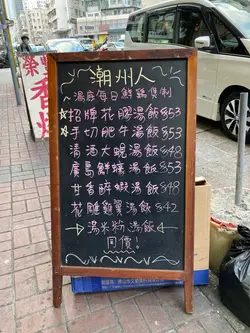 潮州人
湯底每日鮮雞熬制
招牌花膠湯飯$53
手切肥牛湯飯$53
清酒大蜆湯飯$48
廣島鮮蠔湯飯$53
甘香醉蝦湯飯$48
花雕雞翼湯飯$42
湯米粉 湯飯
同價!
香燭